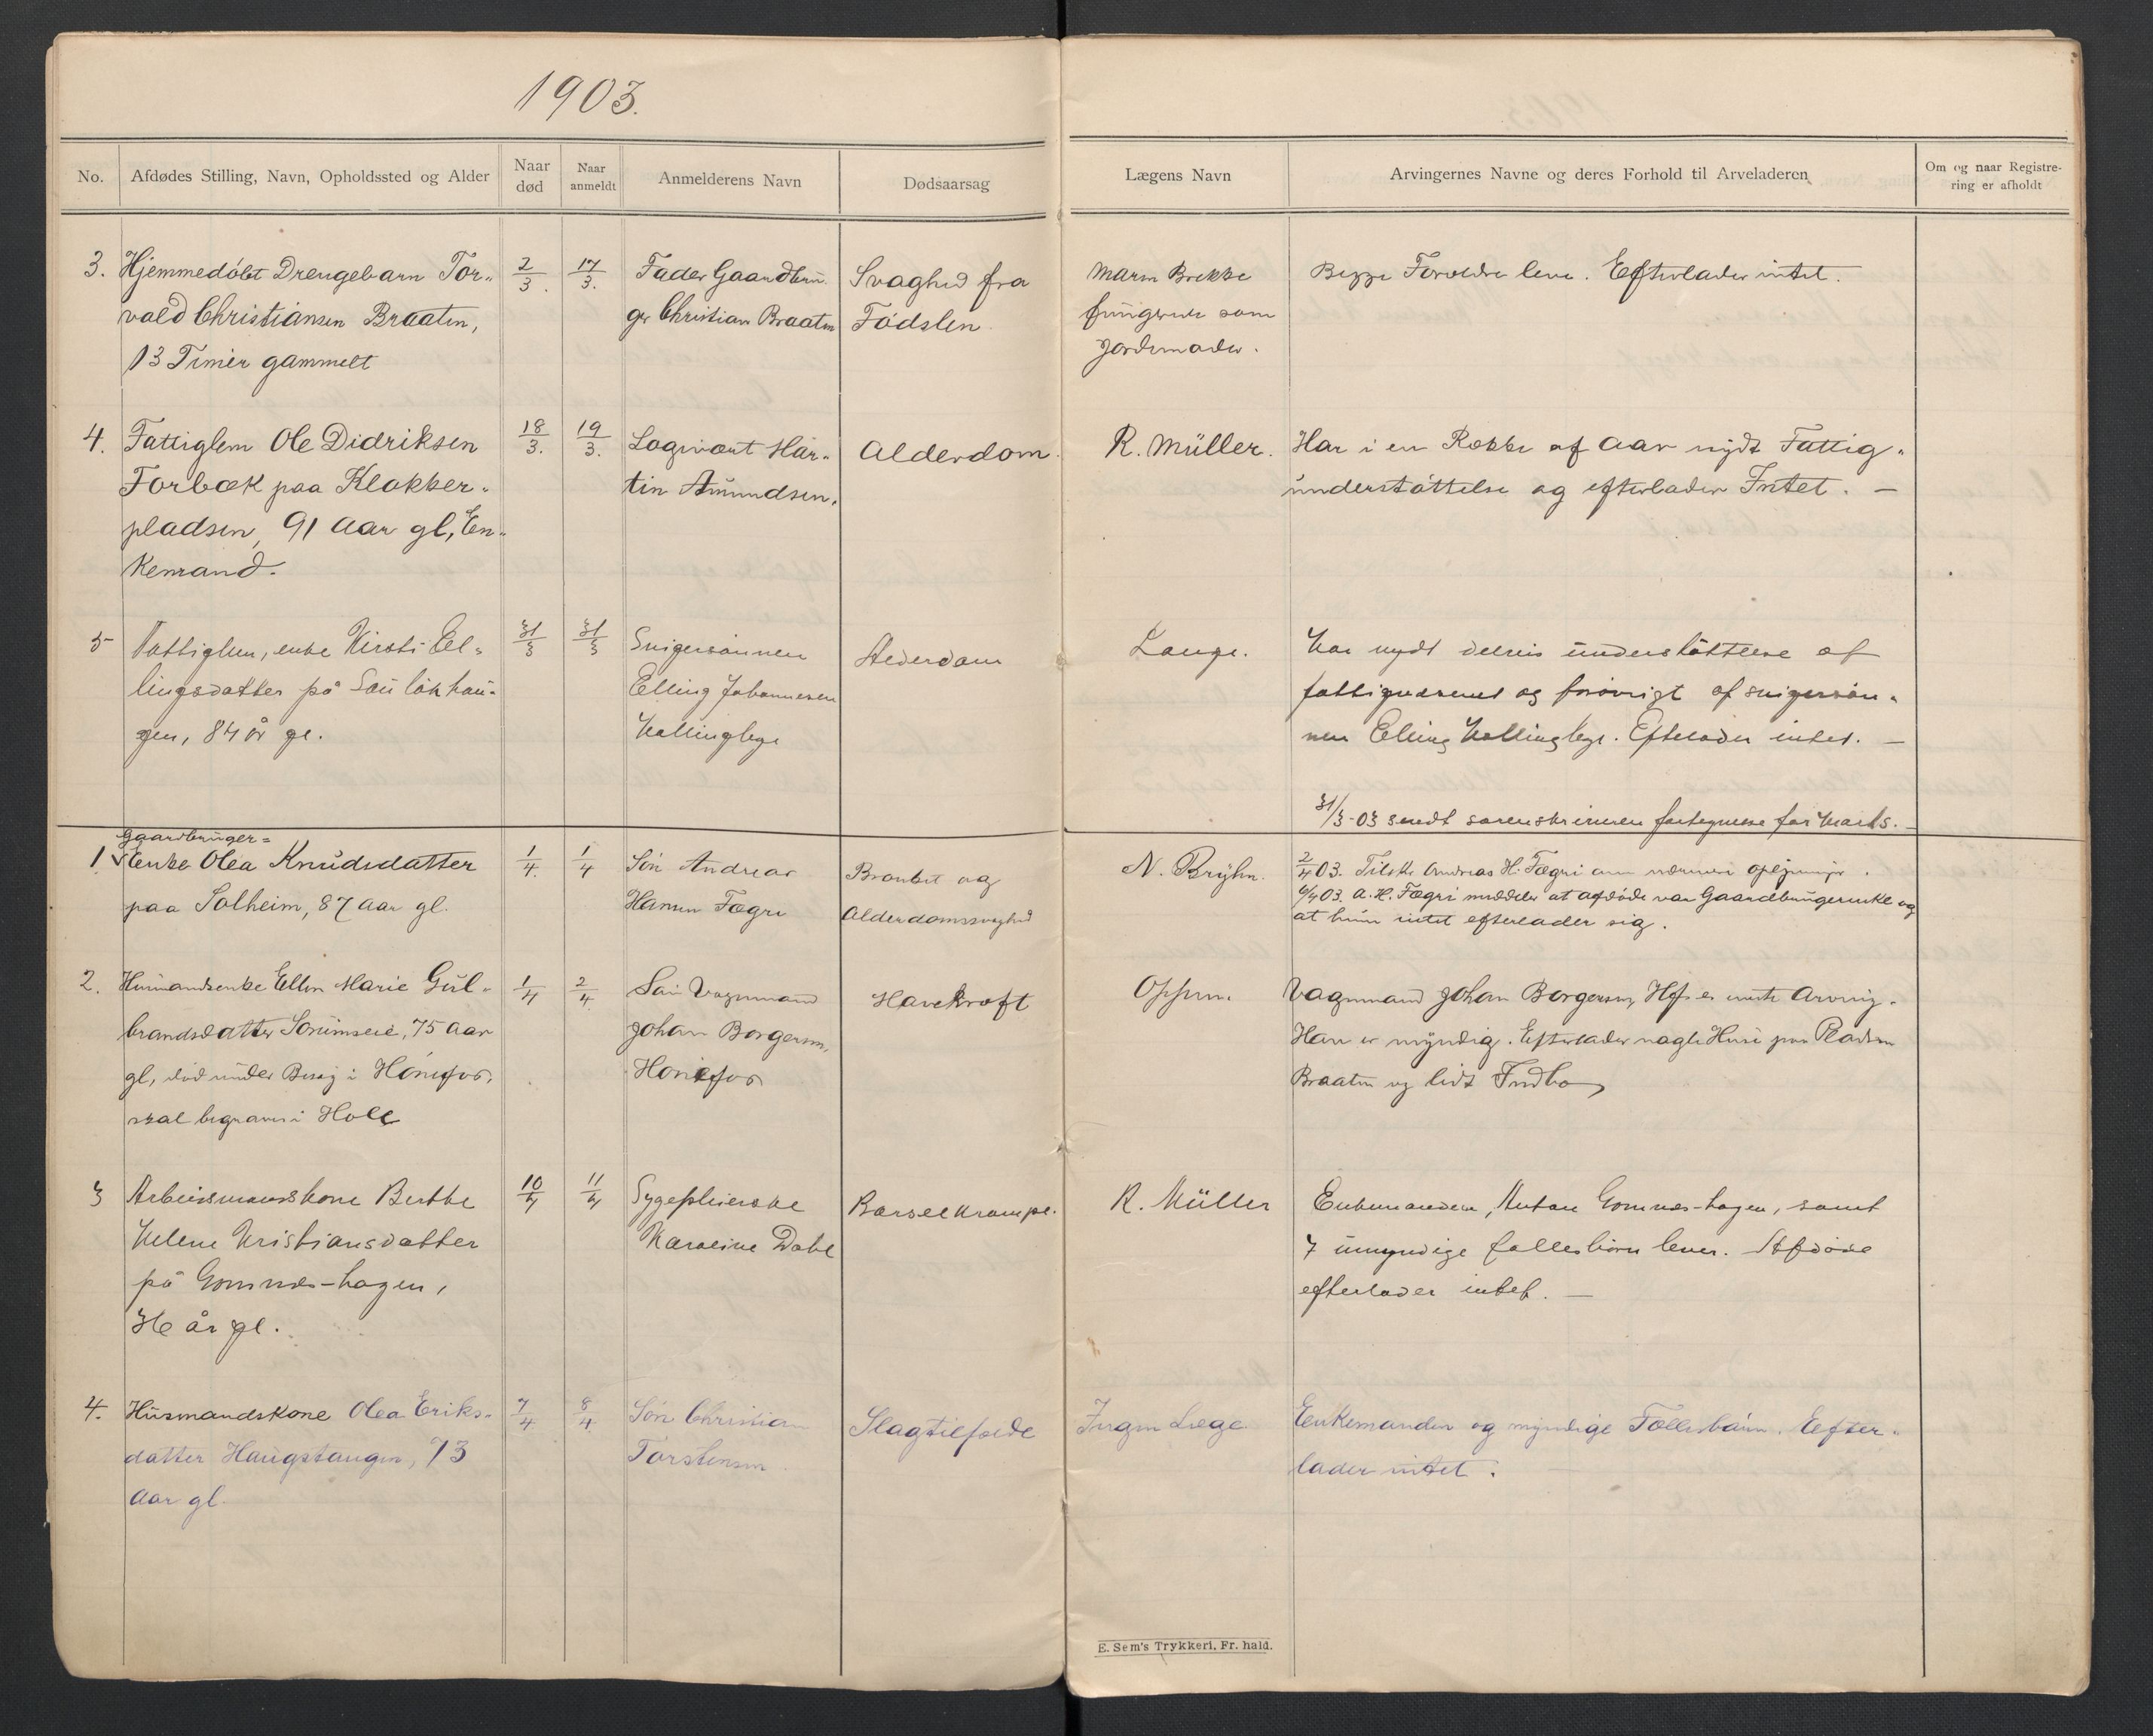 1903.
No.
Afdødes Stilling, Navn, Opholdssted og Alder
Naar død
Naar anmeldt
Anmelderens Navn
Dødsaarsag
Lægens Navn
Arvingernes Navne og deres Forhold til Arveladeren
Om og naar Registre-
ring er afholdt
3. Hjemmedøbt Drengebarn Tor-
vald Christiansen Braaten,
13 Timer gammelt
2/3.
17/3.
Fader Gaardbru-
ger Christian Braaten
Svaghed fra
Fødslen
Maren Brekke
fungerende som
Jordemoder.
Begge Forældre lever. Efterlader intet.
4. Fattiglem Ole Didriksen
Forbæk paa Klokker-
pladsen, 91 Aar gl, En-
kemand.
18/3.
19/3.
Logivært Mar-
tin Amundsen.
Alderdom.
R. Müller.
Har i en Række af Aar nydt Fattig-
understøttelse og efterlader Intet. —
5 Fattiglem, enke Kirsti El-
lingsdatter på
gen, 84 år gl.
31/3
31/3
Svigersønnen
Elling Johannesen
Hallingbye
Alderdom
Lange.
Har nydt delvis understøttelse af
fattigvæsenet og forøvrigt af svigersøn-
nen Elling Hallingbye. Efterlader intet. —
31/3-03 sendt sorenskriveren fortegnelse for Marts. —
Gaardbruger-
1. Enke Olea Knudsdatter
paa Solheim, 87 Aar gl.
1/4.
1/4
Søn Andreas
Hansen Fægri
Bronkit og
Alderdomssvaghed
N. Bryhn.
2/4 03. Tilskr. Andreas H. Fægri om nærmere oplysninger.
6/4 03. A. H. Fægri meddeler at afdøde var Gaardbrugerenke og
at hun intet efterlader sig.
2. Husmandsenke Ellen Marie Gul-
brandsdatter Sørumseie, 75 Aar
gl, død under Besøg i Hønefos,
skal begraves i Hole
1/4
2/4.
Søn Vognmand
Johan Borgersen,
Hønefos
Havekræft
Oppen.
Vognmand Johan Borgersen, Hfs er eneste Arving.
Han er myndig. Efterlader nogle Huse paa Pladsen
Braaten og lidt Indbo
3 Arbeidsmandskone Berthe
Helene Kristiansdatter
på Gomnes-hagen,
36 år gl.
10/4
11/4
Sygepleierske
Karoline Dahl
Barselkrampe.
R. Müller
Enkemanden, Anton Gomnes-hagen, samt
7 umyndige fællesbørn lever. Afdøde
efterlader intet. —
4. Husmandskone Olea Eriks-
datter Haugstangen, 73
Aar gl.
7/4.
8/4.
Søn Christian
Torstensen
Slagtilfælde
Ingen Læge
Enkemanden og myndige Fællesbørn. Efter-
lader intet.
E. Sem's Trykkeri, Fr. hald.